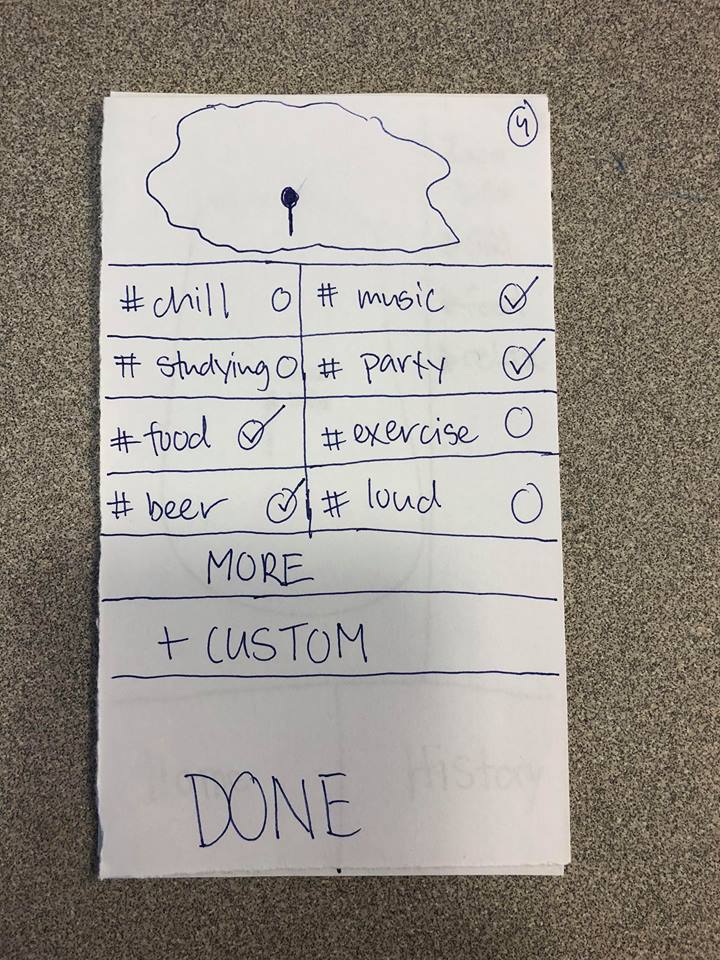 4
#chill
# music
# studying
# party
#food
#exercise
#beer
# loud
MORE
+ CUSTOM
DONE
History